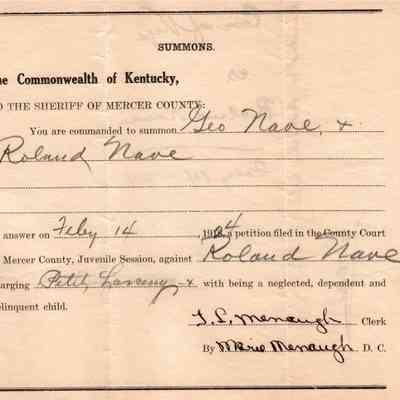 SUMMONS.
he Commonwealth of Kentucky,
O THE SHERIFF OF MERCER COUNTY:
You are commanded to summon Geo Nave, &
Roland Nave
answer on Feby 14 1924, a petition filed in the County Court
Mercer County, Juvenile Session, against Roland Nave
arging Petit Larceny & with being a neglected, dependent and
elinquent child.
T. L. Menaugh Clerk
By Marie Menaugh D. C.